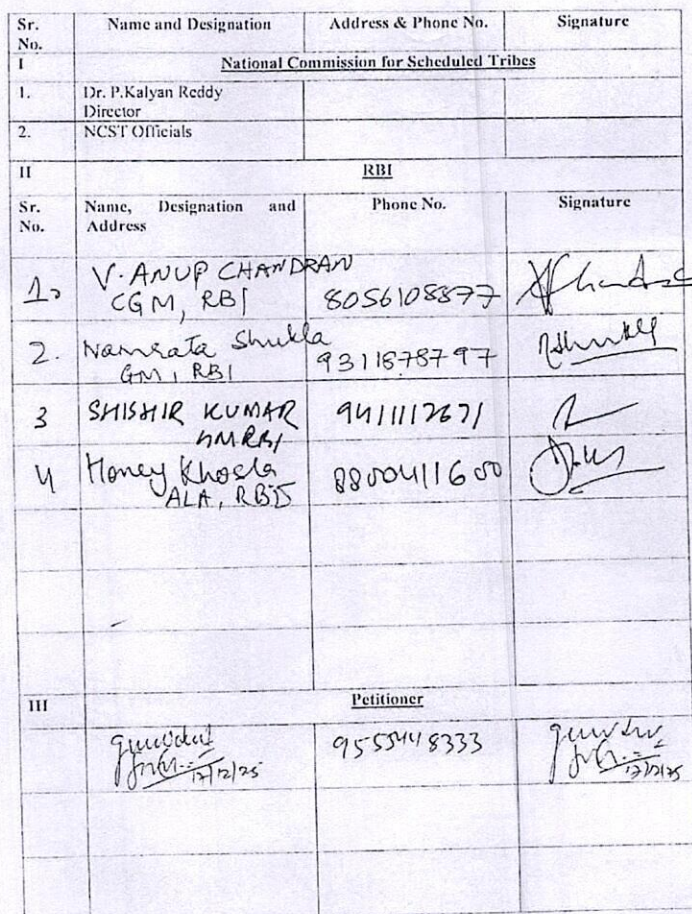 Sr. No. Name and Designation Address & Phone No. Signature
I National Commission for Scheduled Tribes
1. Dr. P.Kalyan Reddy
Director
2. NCST Officials
II RBI
Sr. No. Name, Designation and Address Phone No. Signature
1. V. ANUP CHANDRAN
CGM, RBI 8056108877
2. Namrata Shukla
GM, RBI 9311878797
3 SHISHIR KUMAR 9411112671
RBI
4 Honey Khosla
ALA, RBI 8800411600
III Petitioner
9555448333
17/12/25 17/12/25